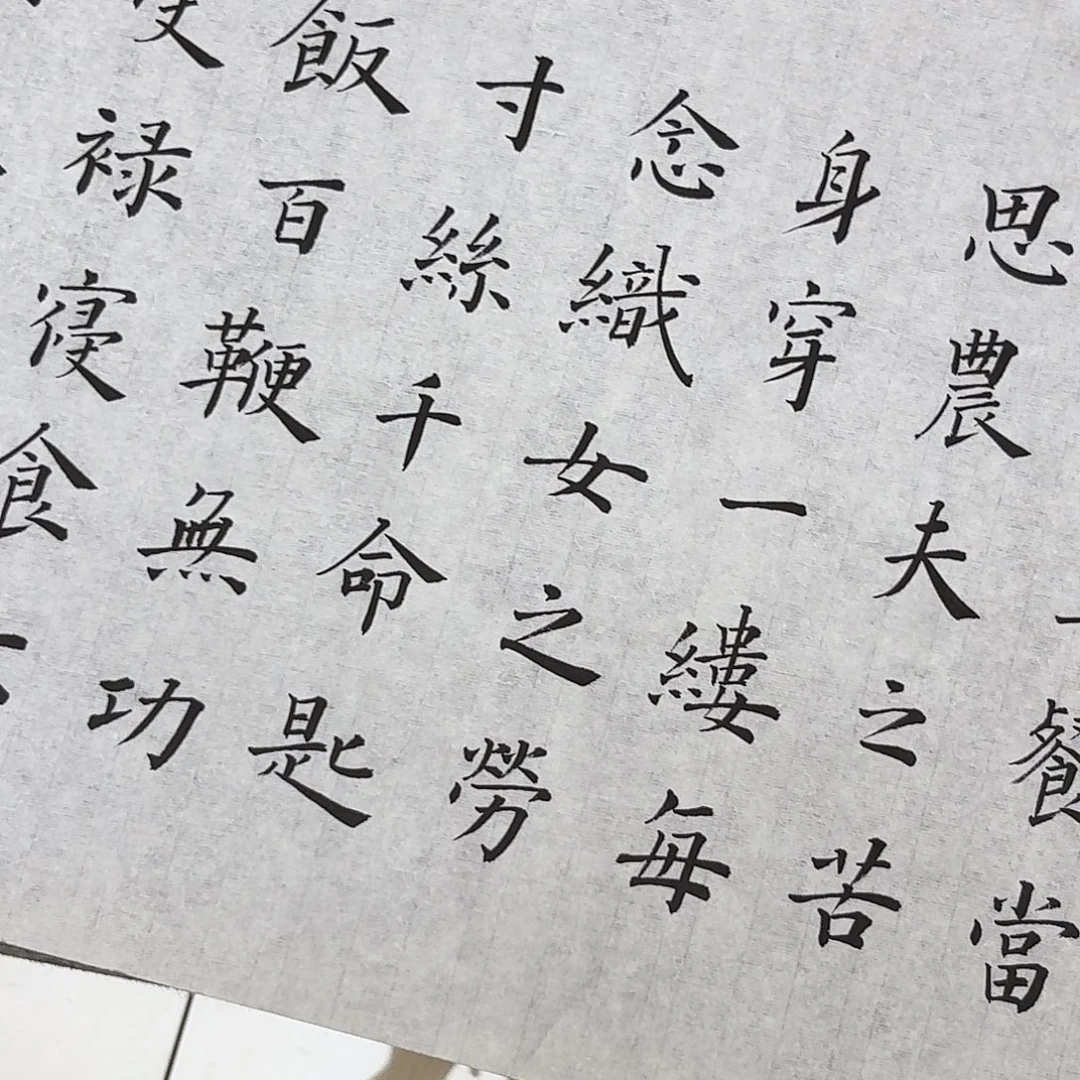 餐當
思農夫之苦
身穿一縷每
念織女之勞
寸絲千命匙
飯百鞭無功
禄寢食